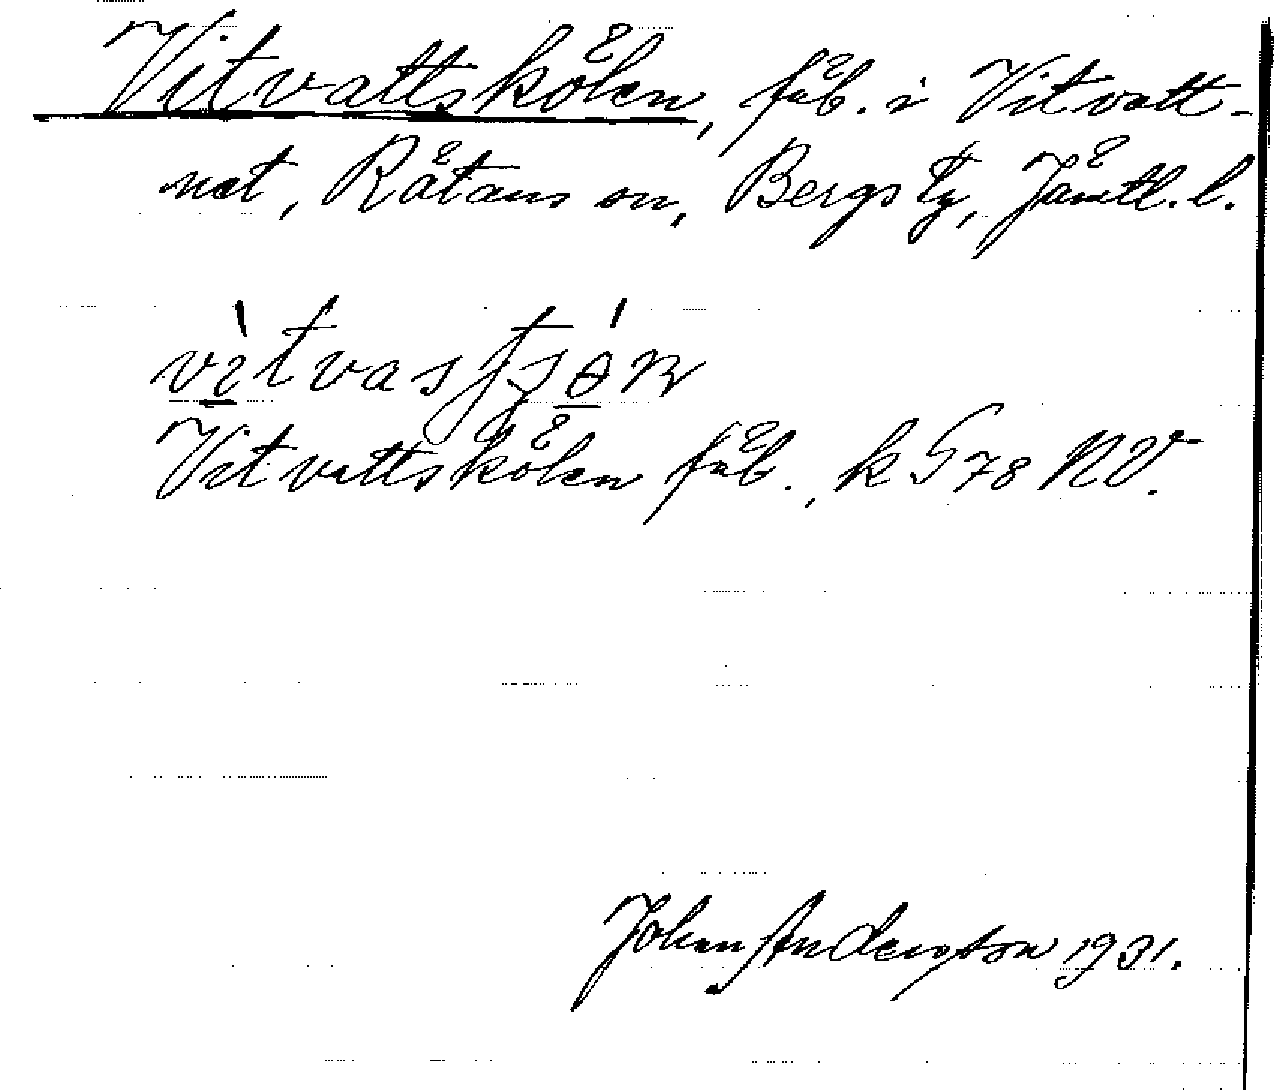 Vitvattskölen, fäb. i Vitvatt-
net, Rätans sn, Bergs tg, Jämtl. l.
Vitvattskölen fäb., k G 78 NV.
Johan Anderson 1931.